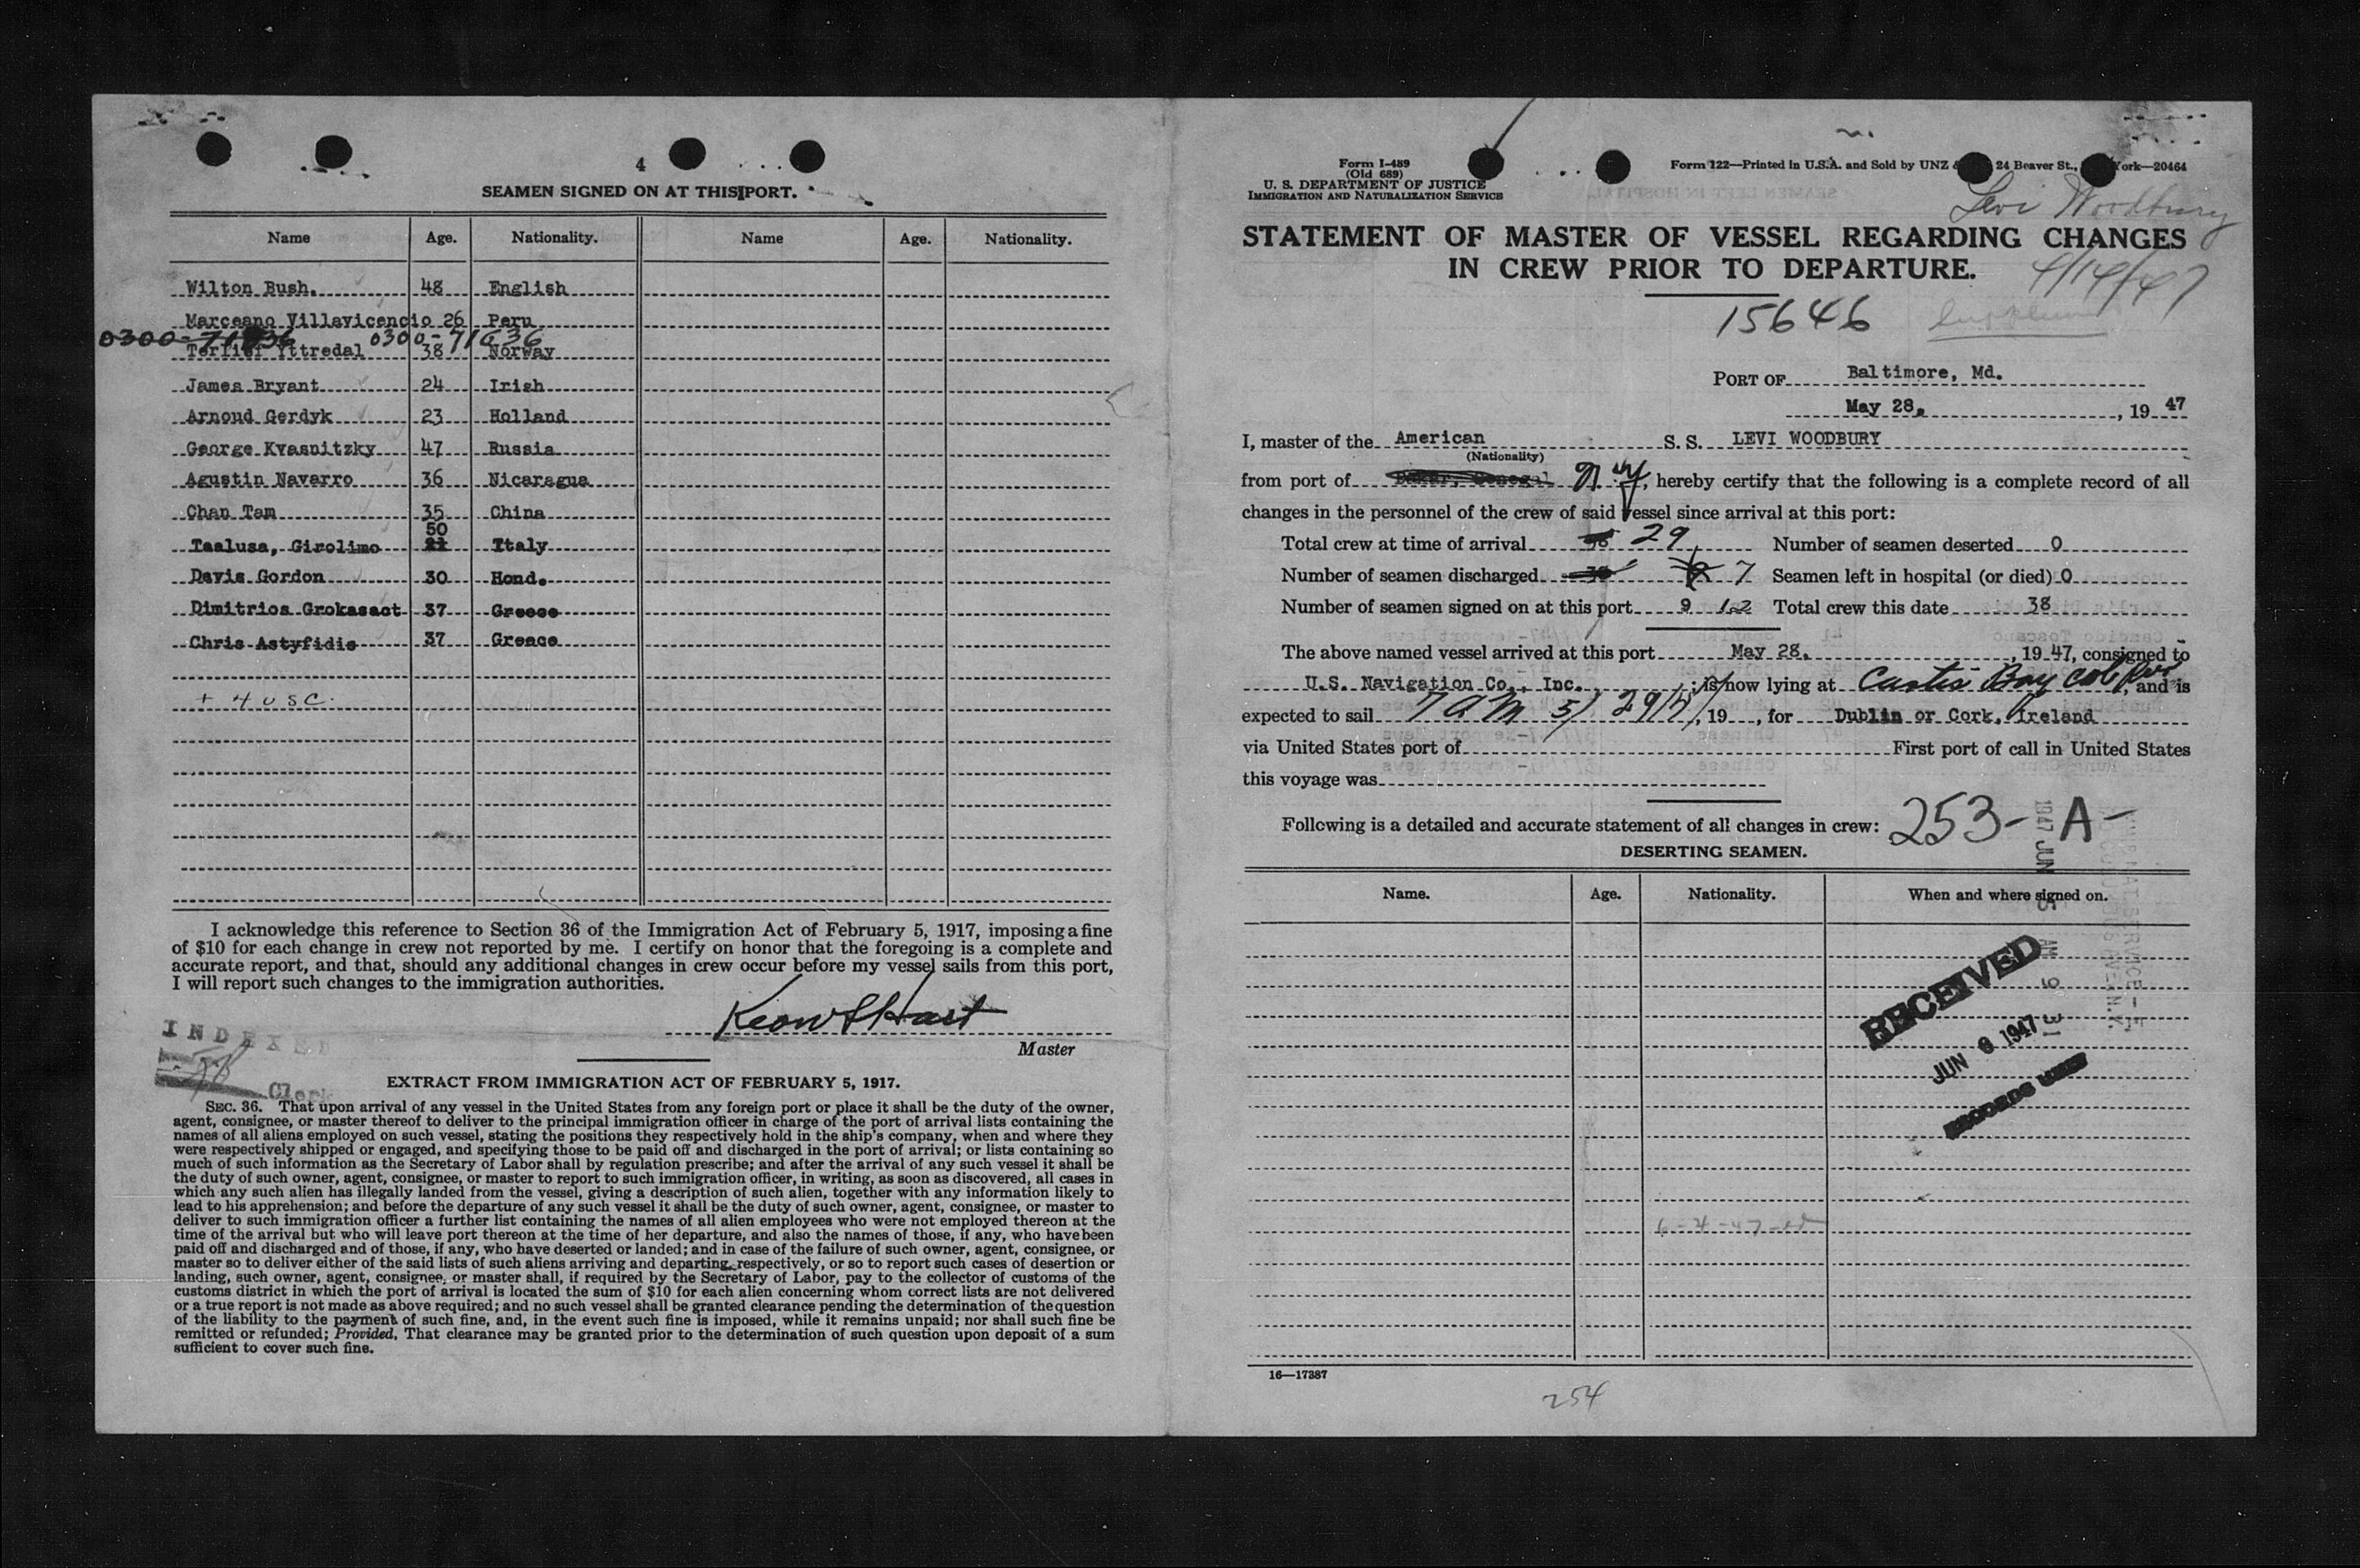 4
SEAMEN SIGNED ON AT THIS PORT.
Name Age. Nationality. Name Age. Nationality.
Wilton Bush. 48 English
Marceano Villavicencio 26 Peru
0300-71636 0300-71636
Torlief Yttredal 38 Norway
James Bryant 24 Irish
Arnoud Gerdyk 23 Holland
George Kvasnitzky 47 Russia
Agustin Navarro 36 Nicaragua
Chan Tam 35 China
50
Taalusa, Girolimo 21 Italy
Davis Gordon 30 Hond.
Dimitrios Grokasact 37 Greece
Chris Astyfidis 37 Greece
+ 4 USC.
I acknowledge this reference to Section 36 of the Immigration Act of February 5, 1917, imposing a fine
of $10 for each change in crew not reported by me. I certify on honor that the foregoing is a complete and
accurate report, and that, should any additional changes in crew occur before my vessel sails from this port,
I will report such changes to the immigration authorities.
Master
INDEXED
Clerk
EXTRACT FROM IMMIGRATION ACT OF FEBRUARY 5, 1917.
SEC. 36. That upon arrival of any vessel in the United States from any foreign port or place it shall be the duty of the owner,
agent, consignee, or master thereof to deliver to the principal immigration officer in charge of the port of arrival lists containing the
names of all aliens employed on such vessel, stating the positions they respectively hold in the ship's company, when and where they
were respectively shipped or engaged, and specifying those to be paid off and discharged in the port of arrival; or lists containing so
much of such information as the Secretary of Labor shall by regulation prescribe; and after the arrival of any such vessel it shall be
the duty of such owner, agent, consignee, or master to report to such immigration officer, in writing, as soon as discovered, all cases in
which any such alien has illegally landed from the vessel, giving a description of such alien, together with any information likely to
lead to his apprehension; and before the departure of any such vessel it shall be the duty of such owner, agent, consignee, or master to
deliver to such immigration officer a further list containing the names of all alien employees who were not employed thereon at the
time of the arrival but who will leave port thereon at the time of her departure, and also the names of those, if any, who have been
paid off and discharged and of those, if any, who have deserted or landed; and in case of the failure of such owner, agent, consignee, or
master so to deliver either of the said lists of such aliens arriving and departing, respectively, or so to report such cases of desertion or
landing, such owner, agent, consignee, or master shall, if required by the Secretary of Labor, pay to the collector of customs of the
customs district in which the port of arrival is located the sum of $10 for each alien concerning whom correct lists are not delivered
or a true report is not made as above required; and no such vessel shall be granted clearance pending the determination of the question
of the liability to the payment of such fine, and, in the event such fine is imposed, while it remains unpaid; nor shall such fine be
remitted or refunded; Provided, That clearance may be granted prior to the determination of such question upon deposit of a sum
sufficient to cover such fine.
Form I-489
(Old 689)
U. S. DEPARTMENT OF JUSTICE
IMMIGRATION AND NATURALIZATION SERVICE
Form 122—Printed in U.S.A. and Sold by UNZ & 24 Beaver St., York—20464
Levi Woodbury
STATEMENT OF MASTER OF VESSEL REGARDING CHANGES
IN CREW PRIOR TO DEPARTURE.
4/14/47
15646
PORT OF Baltimore, Md.
May 28, , 19 47
I, master of the American S. S. LEVI WOODBURY
(Nationality)
from port of Dakar, Senegal N.Y, hereby certify that the following is a complete record of all
changes in the personnel of the crew of said vessel since arrival at this port:
Total crew at time of arrival 29 Number of seamen deserted 0
Number of seamen discharged 7 Seamen left in hospital (or died) 0
Number of seamen signed on at this port 9 12 Total crew this date 38
The above named vessel arrived at this port May 28, , 19 47, consigned to
U.S. Navigation Co., Inc. ; is now lying at Curtis Bay , and is
expected to sail 7 AM 5/29/47, 19 , for Dublin or Cork, Ireland
via United States port of First port of call in United States
this voyage was
Following is a detailed and accurate statement of all changes in crew: 253-A-
DESERTING SEAMEN.
Name. Age. Nationality. When and where signed on.
1947 JUN 5 AM 9 31
RECEIVED
JUN 6 1947
RECORDS
6-4-47-ed
16—17387
254